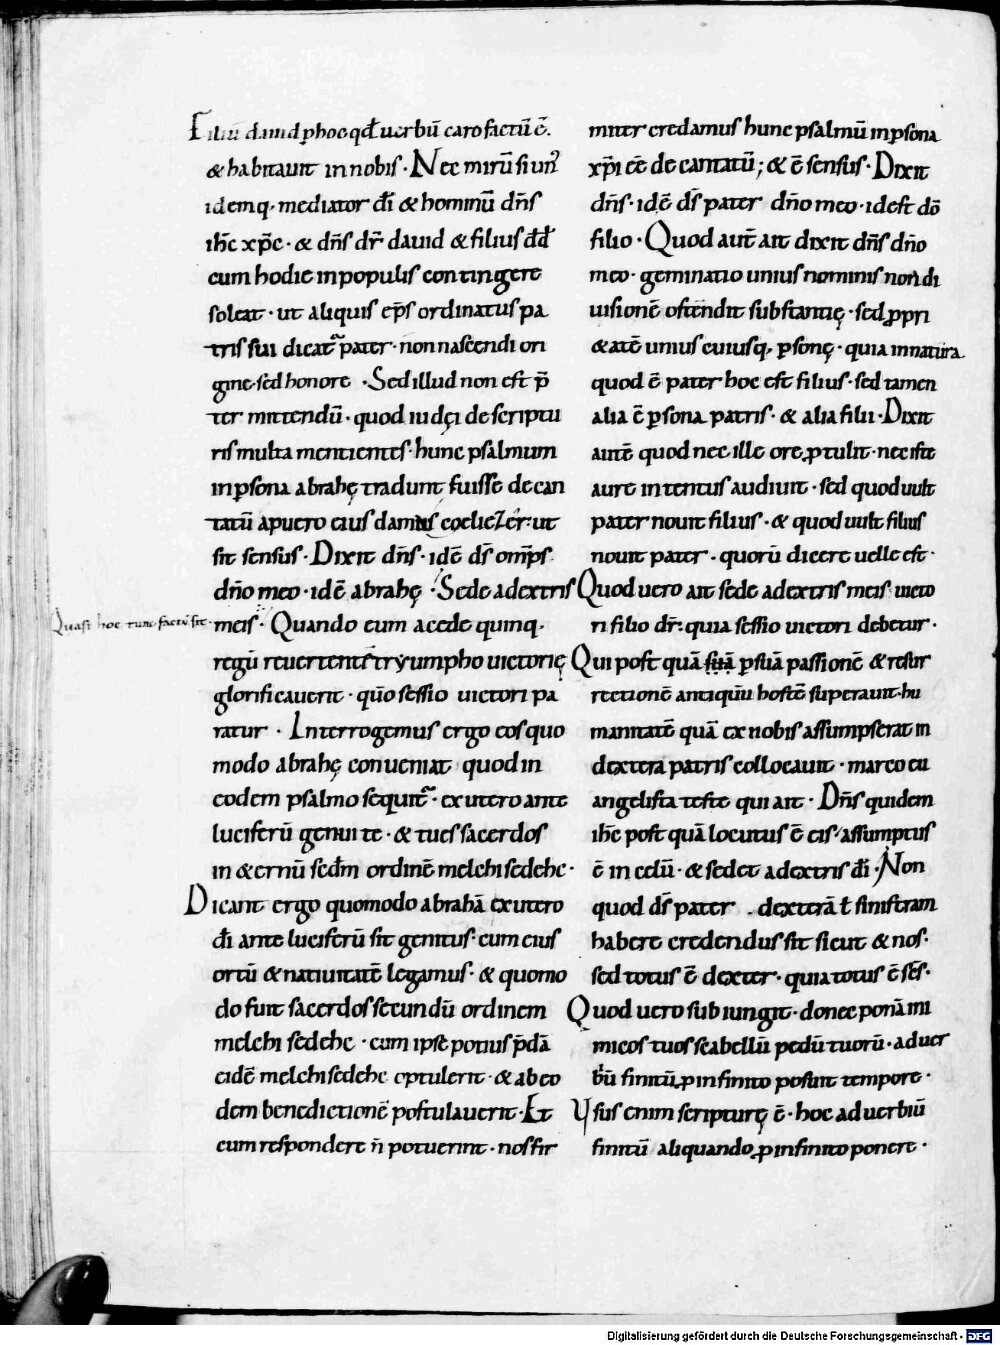 Filiū dauid ꝑhoc qđ uerbū caro factū ē.
& habitauit in nobis · Nec mirū si un᷒
idemq, mediator dī & hominū dn̄s
ih̄c xp̄c · & dn̄s dr̄ dauid & filius dđ
cum hodie in populis contingere
soleat · ut aliquis ep̄s ordinatus pa
tris sui dicat᷑ pater · non nascendi ori
gine · sed honore · Sed illud non est p̄
ter mittendū · quod iudęi de scriptu
ris multa mentientes · hunc psalmum
in ꝑsona abrahę tradunt fuisse decan
tatū a puero eius damas c
 · ut
sit sensus · Dixit dn̄s · idē ds̄ omp̄s
dn̄o meo · idē abrahę · Sede a dextris
meis · Quando eum a cede quinq,
Quasi hoc tunc factū sit ·
regū reuertentē tryumpho uictorię
glorificauerit · qūo sessio uictori pa
ratur · Interrogemus ergo eos quo
modo abrahę conueniat quod in
eodem psalmo sequit᷑ · ex utero ante
luciferū genui te · & tu es sacerdos
in &ernū sedm̄ ordinē melchisedehc ·
Dicant ergo quomodo abrahā ex utero
dī ante luciferū sit genitus · cum eius
ortū & natiuitatē legamus · & quomo
do fuit sacerdos secundū ordinem
melchisedehc · cum ipse potius p̄dā
eidē melchisedehc optulerit · & ab eo
dem benedictionē postulauerit · Et
cum respondere n̄ potuerint · nos fir
miter credamus hunc psalmū in ꝑsona
xp̄i eē decantatū ; & ē sensus · Dixit
dn̄s · idē ds̄ pater dn̄o meo · id est dō
filio · Quod aut̄ ait dixit dn̄s dn̄o
meo · geminatio unius nominis non di
uisionē ostendit substantię · sed ꝓpri
&atē unius cuiusq, ꝑsonę · quia in natura
quod ē pater hoc est filius · sed tamen
alia ē ꝑsona patris · & alia filii · Dixit
autē quod nec ille ore ꝓtulit · nec iste
aure intentus audiuit · sed quod uult
pater nouit filius · & quod uult filius
nouit pater · quorū dicere uelle est ·
Quod uero ait sede a dextris meis uicto
ri filio dr̄ · quia sessio uictori debetur ·
Qui post quā suā ꝑ suā passionē & resur
rectionē antiquū hostē superauit · hu
manitatē quā ex nobis assumpserat in
dextera patris collocauit · marco eu
angelista teste qui ait · Dn̄s quidem
ih̄c post quā locutus ē eis / assumptus
ē in celū · & sedet a dextris dī · Non
quod ds̄ pater · dexterā ł sinistram
habere credendus sit sicut & nos ·
sed totus ē dexter · quia totus ē sēs ·
Quod uero subiungit · donec ponā ini
micos tuos scabellū pedū tuorū · ad uer
bū finitū ꝓ infinito posuit tempore ·
Ysus enim scripturę ē · hoc ad uerbiū
finitū aliquando ꝓ infinito ponere ·
Digitalisierung gefördert durch die Deutsche Forschungsgemeinschaft - DFG